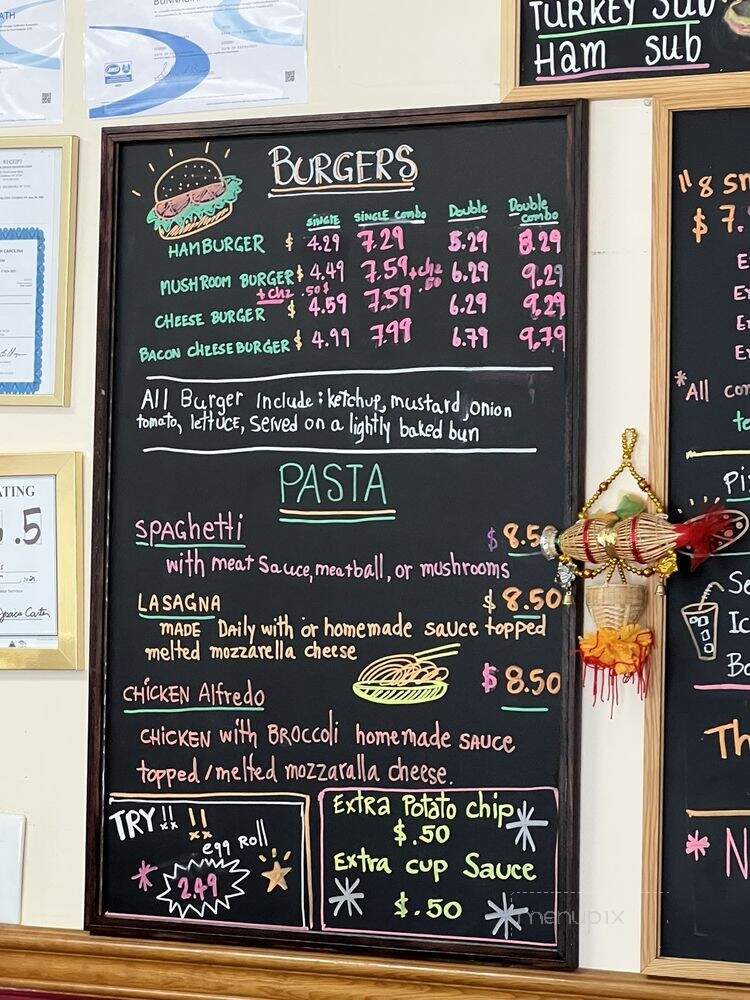 TURKEY SUB
HAM SUB
BURGERS
SINGLE SINGLE COMBO Double Double Combo
HAMBURGER $ 4.29 7.29 5.29 8.29
MUSHROOM BURGER $ 4.49 7.59 +chz .50 6.29 9.29
+chz .50$
CHEESE BURGER $ 4.59 7.59 6.29 9.29
BACON CHEESEBURGER $ 4.99 7.99 6.79 9.79
All Burger Include: ketchup, mustard, onion
tomato, lettuce, Served on a lightly baked bun
PASTA
SPAGhetti $ 8.50
with meat Sauce, meatball, or mushrooms
LASAGNA $ 8.50
MADE Daily with or homemade sauce topped
melted mozzarella cheese
CHICKEN Alfredo $ 8.50
CHICKEN with BROCCOli homemade SAUCE
topped/melted mozzaralla cheese.
TRY!! !!
egg Roll
2.49
Extra Potato chip
$ .50
Extra cup Sauce
$ .50
menupix